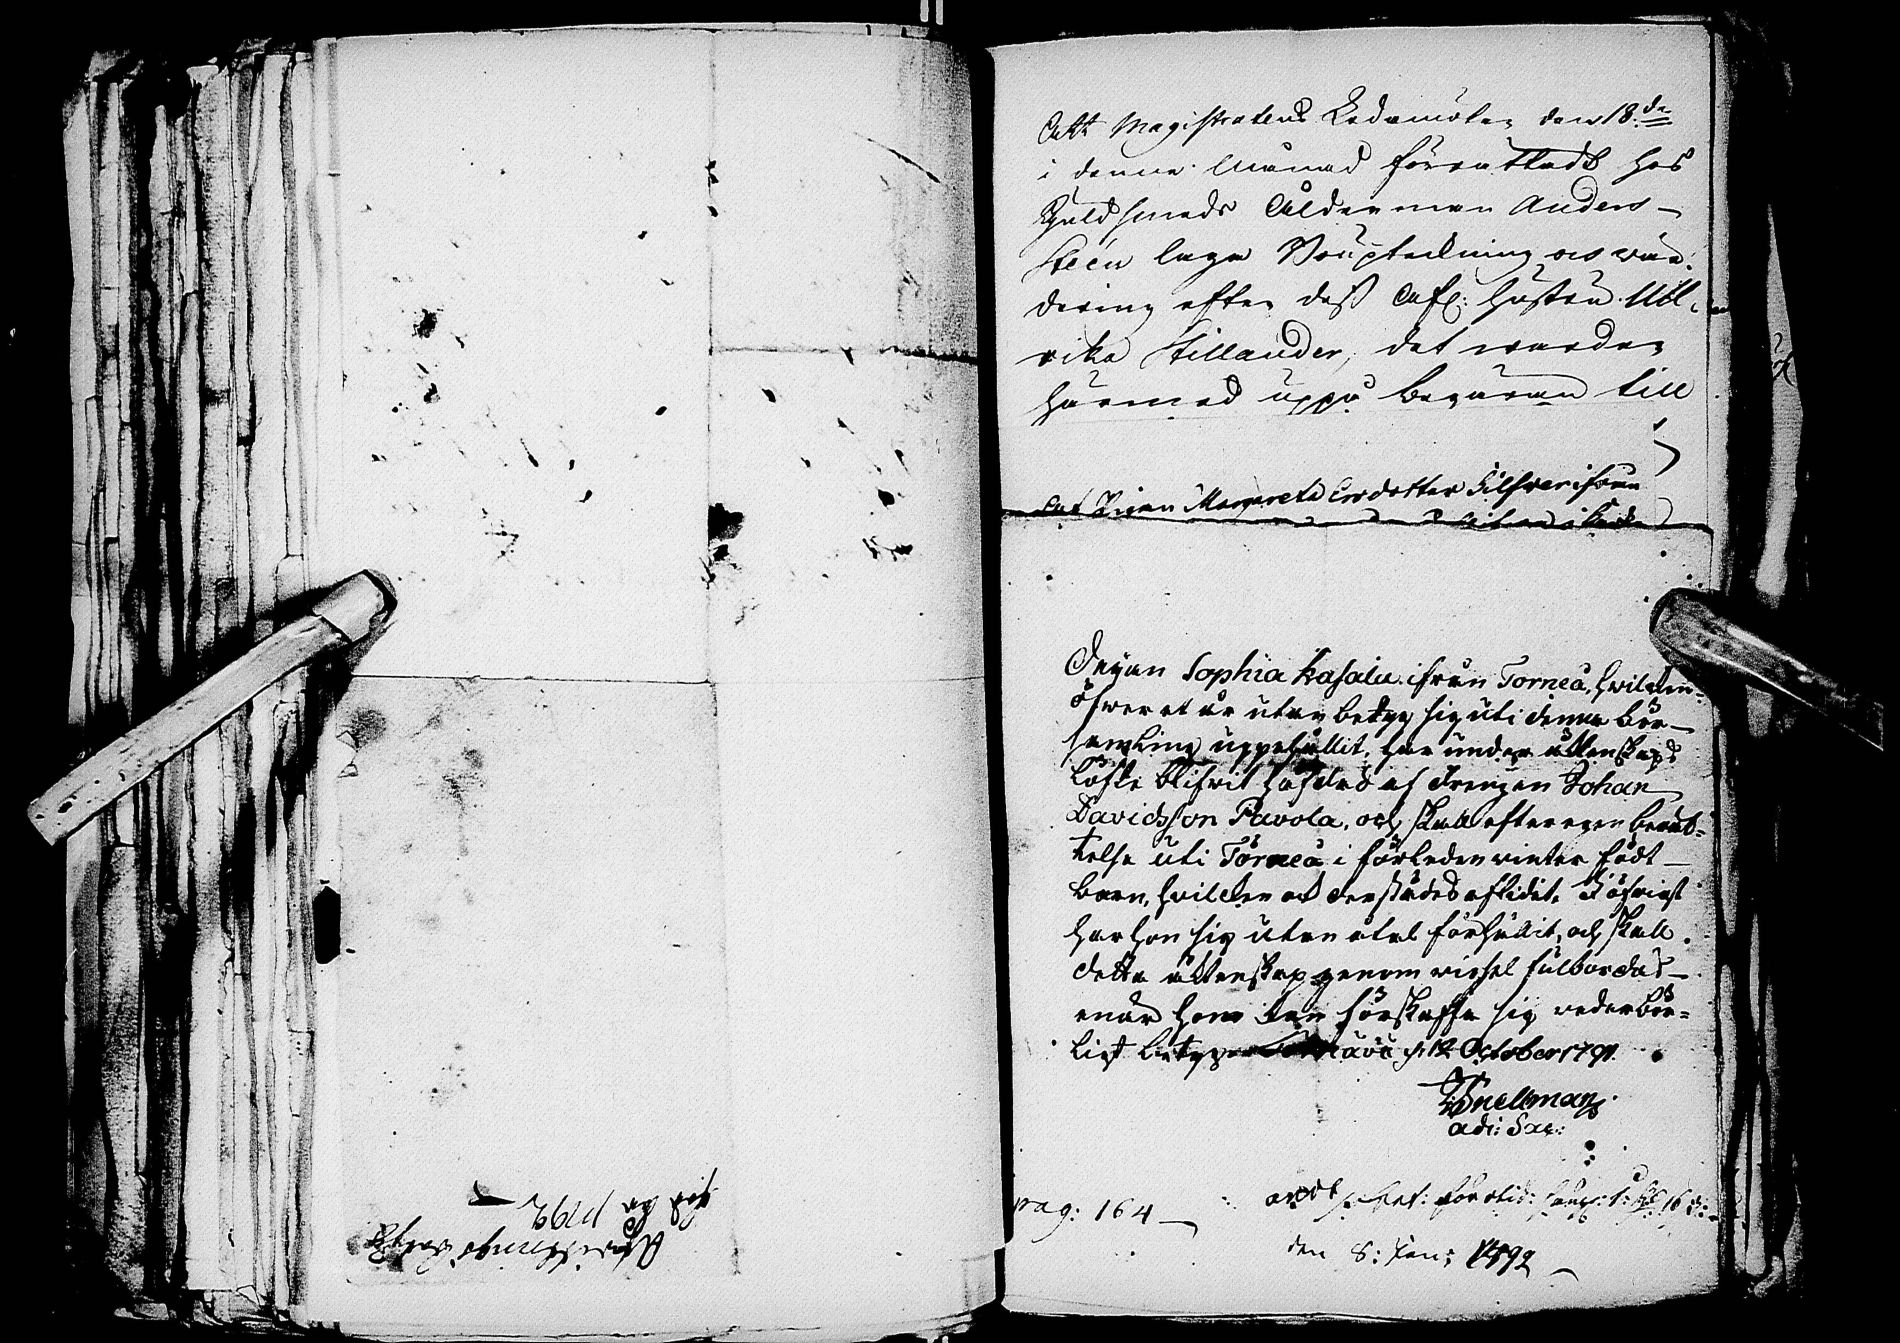 Att Magistratens Ledamöter den 18:de
i denne Månad förrättadt hos
Guldsmeds Ålderman Anders
Steen laga Bouptekning och wär-
dering efter dess Afl: hustru Ul-
rika Stillander, det warder
härmed uppå begäran till
Pigan Margareta Ersdotter
Pigan Sophia Kasala ifrån Torneå, hvilken
öfwer et år utan betyg sig uti denna För-
samling uppehållit, har under äktenskaps
löfte blifwit häfdad af Drengen Johan
Davidsson Pavola, och skall efter egen berät-
telse uti Torneå i förleden winter födt
barn, hvilcket ock derstädes aflidit. I öfrigt
har hon sig utan åtal förhållit, och skall
detta äktenskap genom wigsel fulbordas
enär hon kan förskaffa sig wederbör-
ligt betyg d. 12 October 1791.
Snellman
adj: Sac:
pag: 164
den 8: Jan: 1792